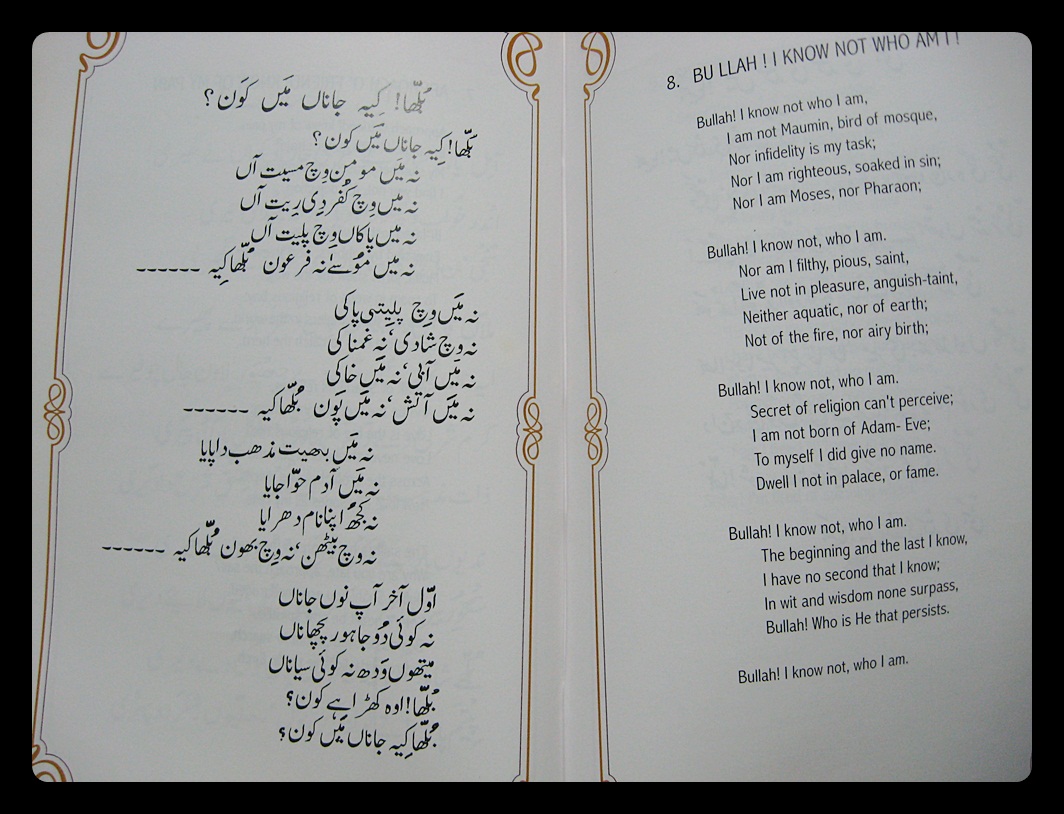 بُلّھا! کِیہ جاناں مَیں کَون؟
بُلّھا! کِیہ جاناں مَیں کون؟
نہ مَیں مومِن وِچ مسیت آں
نہ میں وِچ کُفر دِی رِیت آں
نہ میں پاکاں وِچ پلیت آں
نہ میں مُوسےٰ نہ فرعون بُلّھا کِیہ ------
نہ مَیں وِچ پلیتی پاکی
نہ وِچ شادی، نہ غمناکی
نہ مَیں آبی، نہ مَیں خاکی
نہ مَیں آتش، نہ مَیں پَون بُلّھا کیہ ------
نہ مَیں بھیت مذھب دا پایا
نہ مَیں آدم حوّا جایا
نہ کُجھ اپنا نام دھرایا
نہ وِچ بیٹھن، نہ وِچ بھَون بُلّھا کیہ ------
اوّل آخر آپ نوں جاناں
نہ کوئی دُوجا ہور پچھاناں
میتھوں وَدھ نہ کوئی سیاناں
بُلّھا! اوہ کھڑا ہے کون؟
بُلّھا کِیہ جاناں مَیں کون؟
8. BU LLAH ! I KNOW NOT WHO AM I !
Bullah! I know not who I am,
I am not Maumin, bird of mosque,
Nor infidelity is my task;
Nor I am righteous, soaked in sin;
Nor I am Moses, nor Pharaon;
Bullah! I know not, who I am.
Nor am I filthy, pious, saint,
Live not in pleasure, anguish-taint,
Neither aquatic, nor of earth;
Not of the fire, nor airy birth;
Bullah! I know not, who I am.
Secret of religion can't perceive;
I am not born of Adam- Eve;
To myself I did give no name.
Dwell I not in palace, or fame.
Bullah! I know not, who I am.
The beginning and the last I know,
I have no second that I know;
In wit and wisdom none surpass,
Bullah! Who is He that persists.
Bullah! I know not, who I am.